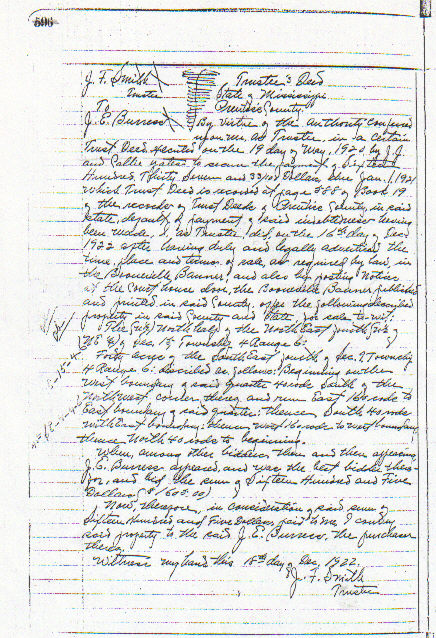 596
J. F. Smith Trustee's Deed
Trustee State of Mississippi
To Prentiss County
J. E. Burress By virtue of the authority conferred
upon me as Trustee, in a certain
Trust Deed executed on the 19 day of May, 1920 by J. J.
and Sallie to secure the payment of Sixteen
Hundred, Thirty Seven and 33/100 Dollars due Jan. 1, 1921
which Trust Deed is recorded at page 588 of Book 19
of the records of Trust Deeds of Prentiss County, in said
state, default of payment of said indebtedness having
been made, I, as Trustee, did, on the 16th day of Dec.
1922 after having duly and legally advertised the
time, place and terms of sale, as required by law, in
the Booneville Banner, and also by posting Notice
at the Court house door, the Booneville Banner published
and printed in said County, offer the following described
property in said County and State, for sale to-wit:
The North half of the North East fourth
of Sec. 13 Township 4 Range 6:
Forty acres of the South East fourth of Sec. 7 Township
4 Range 6: described as follows: Beginning on the
West boundary of said quarter 40 rods South of the
Northwest corner thereof and run East 160 rods to
East boundary of said quarter: thence South 40 rods
with East boundary: thence West 160 rods to West boundary
thence North 40 rods to beginning.
When, among other bidders then and there appearing
J. E. Burress appeared, and was the best bidder there-
for, and bid the sum of Sixteen Hundred and Five
Dollars ($1605.00)
Now, therefore, in consideration of said sum of
Sixteen Hundred and Five Dollars, paid to me, I convey
said property to the said J. E. Burress, the purchaser
thereof.
Witness my hand this 18th day of Dec, 1922.
J. F. Smith
Trustee